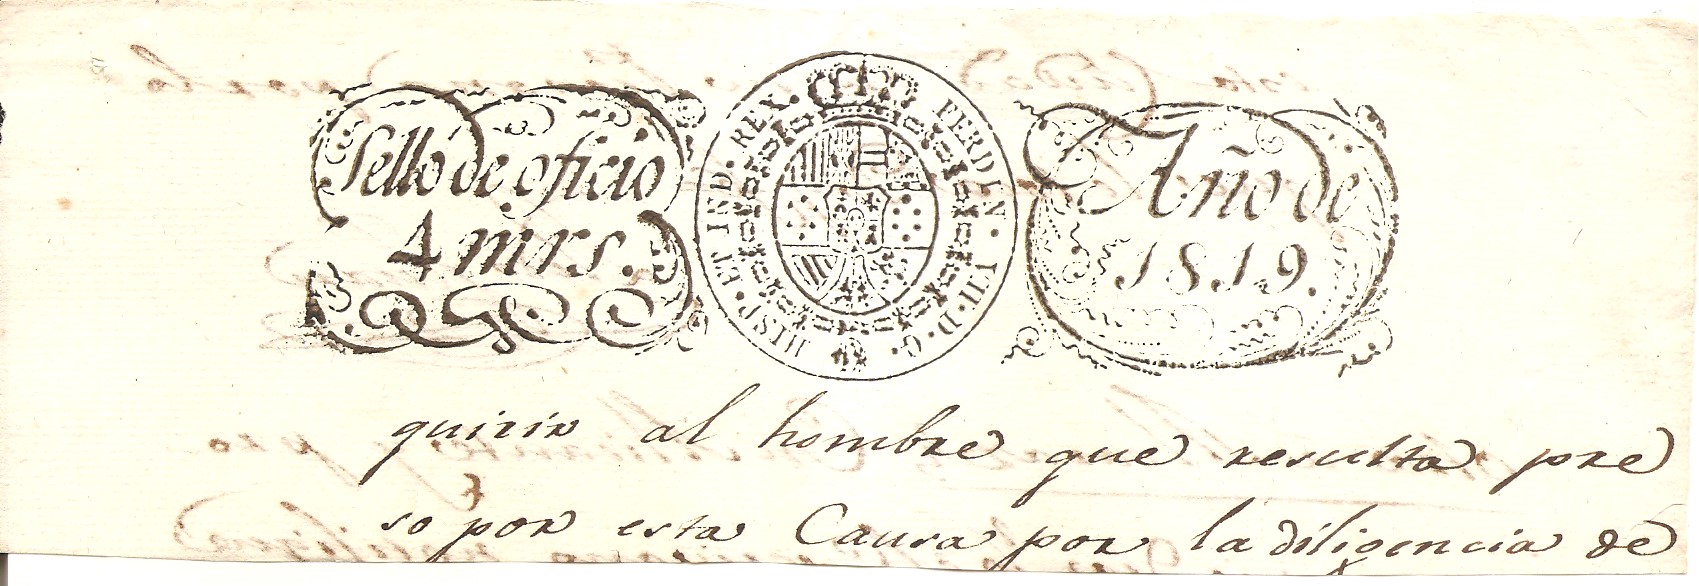 Sello de oficio
4 mrs.
HISP. ET IND. REX. FERDIN. VII. D. G.
Año de
1819.
quirir al hombre que resulta pre
so por esta Causa por la diligencia de